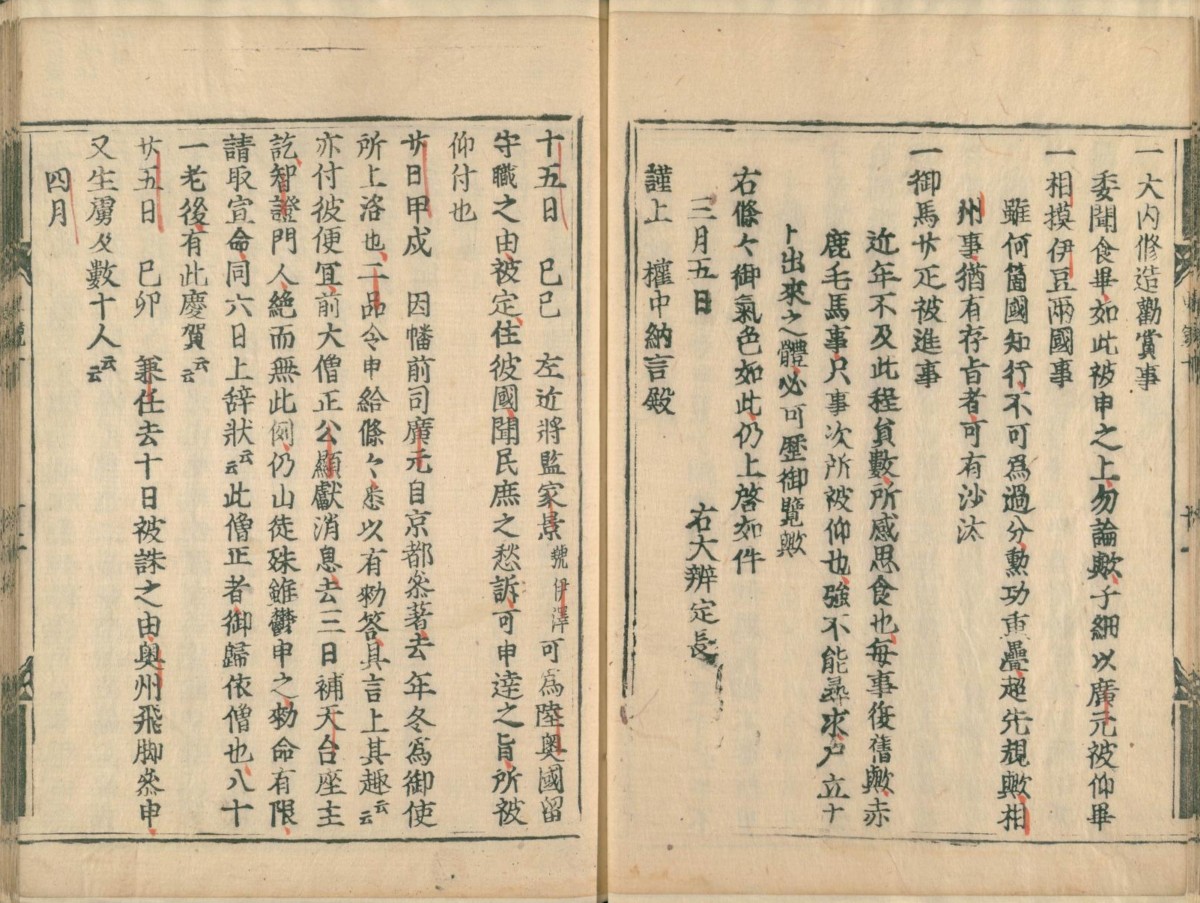 一大内修造勸賞事
委聞食畢如此被申之上勿論歟子細以廣元被仰畢
一相摸伊豆兩國事
雖何箇國知行不可爲過分勲功重疊超先規歟相
州事猶有存旨者可有沙汰
一御馬廿疋被進事
近年不及此程員數所感思食也毎事復舊歟赤
鹿毛馬事只事次所被仰也強不能尋求戸立十
卜出來之體必可歷御覽歟
右條々御氣色如此仍上啓如件
三月五日　右大辨定長
謹上　權中納言殿
十五日　巳己　左近將監家景號伊澤可爲陸奥國留
守職之由被定住彼國聞民庶之愁訴可申達之旨所被
仰付也
廿日甲戌　因幡前司廣元自京都叅著去年冬爲御使
所上洛也二品令申給條々悉以有勅答具言上其趣云云
亦付彼便宜前大僧正公顯獻消息去三日補天台座主
訖智證門人絶而無此例仍山徒殊雖鬱申之勅命有限
請取宣命同六日上辞狀云云此僧正者御歸依僧也八十
一老後有此慶賀云云
廿五日　巳卯　兼任去十日被誅之由奥州飛脚叅申
又生虜及數十人云云
四月